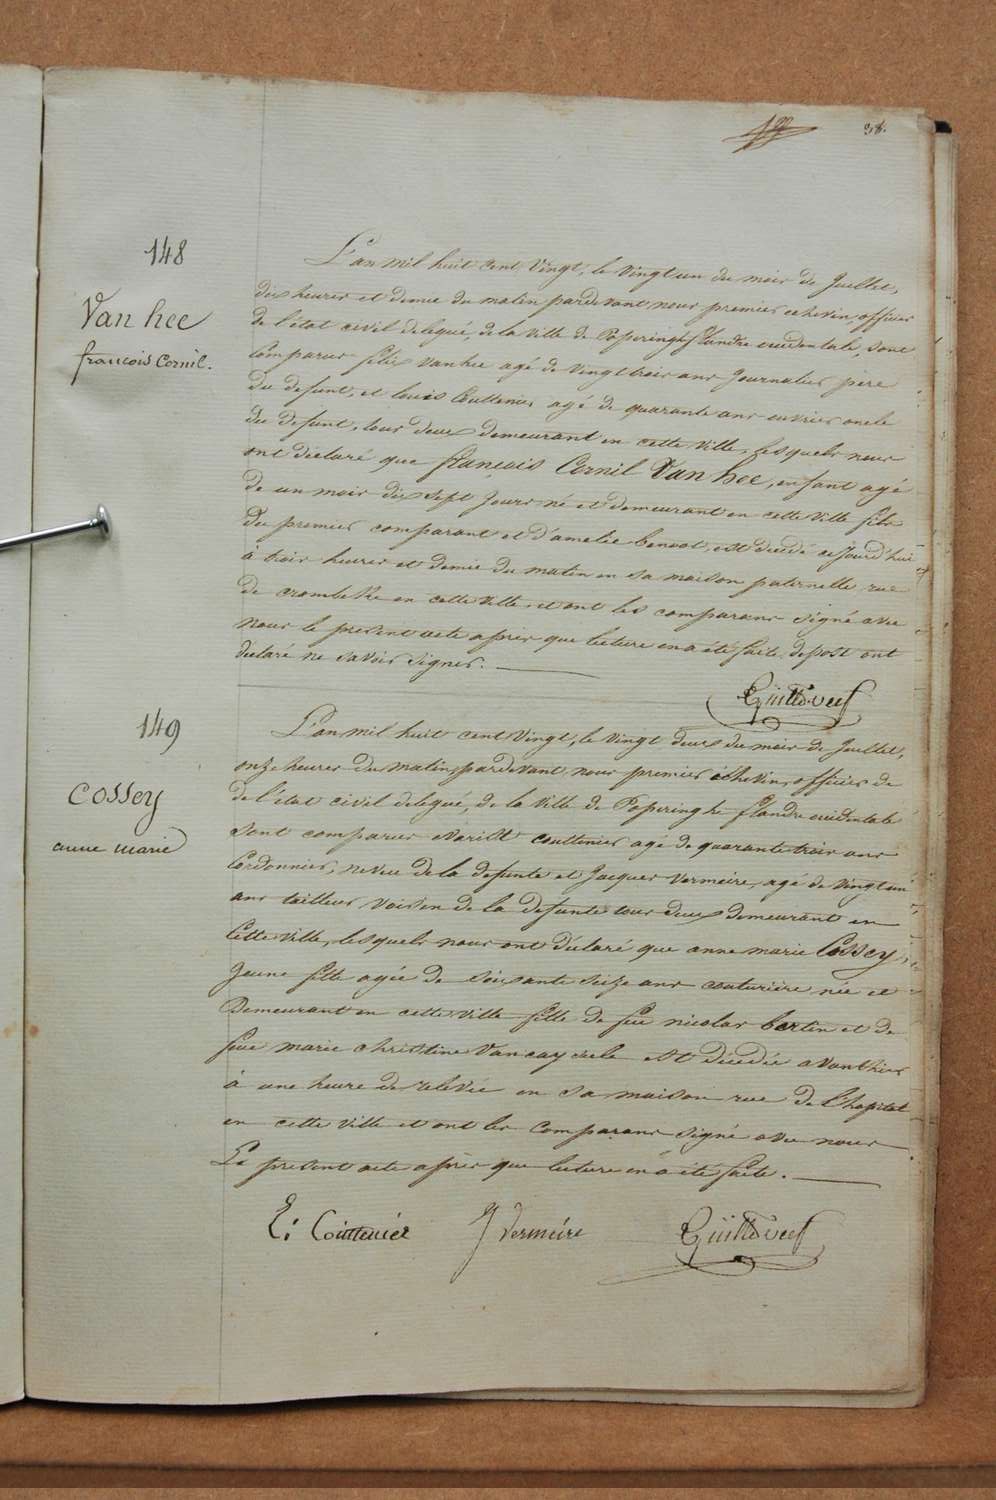 38.
148
Van hee
francois Cornil.
L'an mil huit cent Vingt, le vingt un du mois de Juillet,
dix heures et demie du matin pardevant nous premier echevin, officier
de l'etat civil delegué, de la Ville de Poperinghe flandre occidentale, sont
Comparus felix Vanhee agé de Vingt trois ans Journalier pere
du defunt, et louis Couttenier agé de quarante ans ouvrier oncle
du defunt, tous deux demeurant en cette Ville, lesquels nous
ont déclaré que francois Cornil Van hee, enfant agé
de un mois dix sept Jours né et demeurant en cette Ville fils
du premier comparant et d'amelie benoot, est decedé ce Jourd'hui
à trois heures et demie du matin en sa maison paternelle rue
de crombeke en cette Ville, et ont les comparans signé avec
nous le present acte après que lecture en a été faite
declaré ne savoir signer.
149
Cossey
anne marie
L'an mil huit cent Vingt, le vingt deux du mois de Juillet,
onze heures du matin, pardevant nous premier échevin, officier de
de l'état civil delegué, de la Ville de Poperinghe flandre occidentale
Sont comparus evarist Couttenier agé de quarante trois ans
Cordonnier, neveu de la defunte et Jacques Vermeire, agé de vingt un
ans tailleur voisin de la defunte tous deux demeurant en
Cette Ville, lesquels nous ont déclaré que anne marie Cossey,
Jeune fille agée de soixante seize ans couturière née et
Demeurant en cette Ville fille de feu nicolas bertin et de
feue marie christine est décédée avanthier
à une heure de relevée en sa maison rue de l'hopital
en cette ville et ont les Comparans signé avec nous
Le present acte après que lecture en a été faite.
E: Couttenier J Vermeire